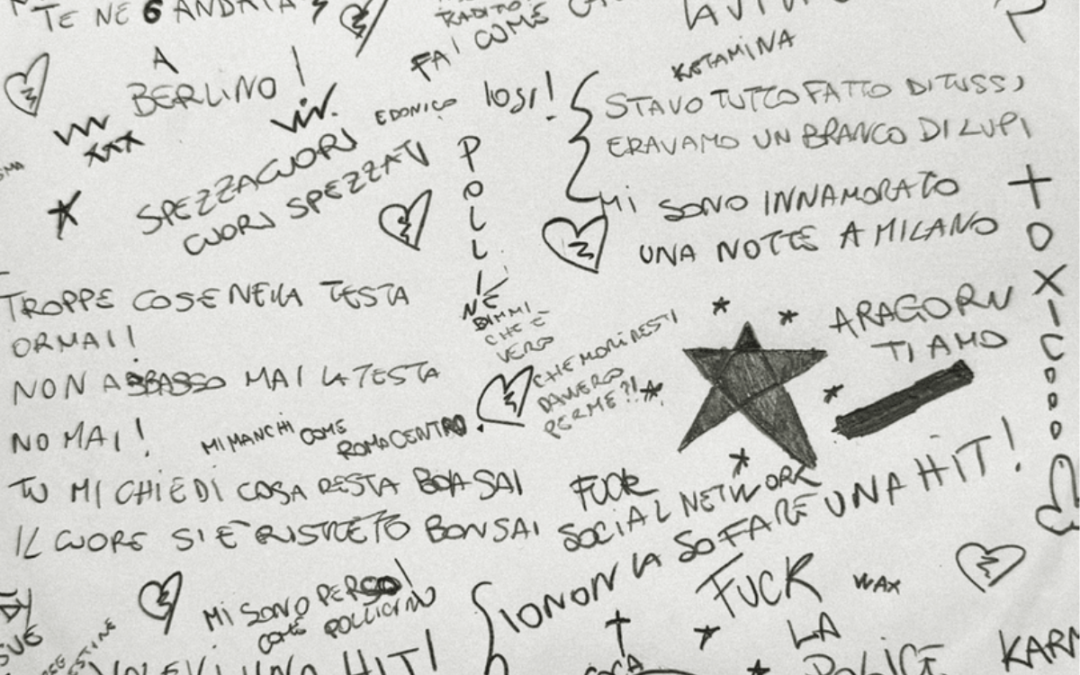 TE NE 6 ANDATA
A
BERLINO!
XXX
FAI COME
EDONICO
SPEZZACUORI
CUORI SPEZZATI
LA VITA
KETAMINA
STAVO TUTTO FATTO DI TUSS,
ERAVAMO UN BRANCO DI LUPI
MI SONO INNAMORATO
UNA NOTTE A MILANO
POLLINE
TOXICOOOO
TROPPE COSE NELLA TESTA
ORMAI!
NON ABBASSO MAI LA TESTA
NO MAI!
MI MANCHI COME
ROMA CENTRO.
BIMMI
CHE È
VERO
CHE MORIRESTI
DAVVERO
PER ME?!
ARAGORN
TI AMO
TU MI CHIEDI COSA RESTA BOH SAI
IL CUORE SI È RISTRETTO BONSAI
FUCK
SOCIAL NETWORK
IO NON LA SO FARE UNA HIT!
MI SONO PERSO
COME POLLICINO
FUCK
LA
POLICE
WAX
VOLEVI UNA HIT!
COCA
KARM